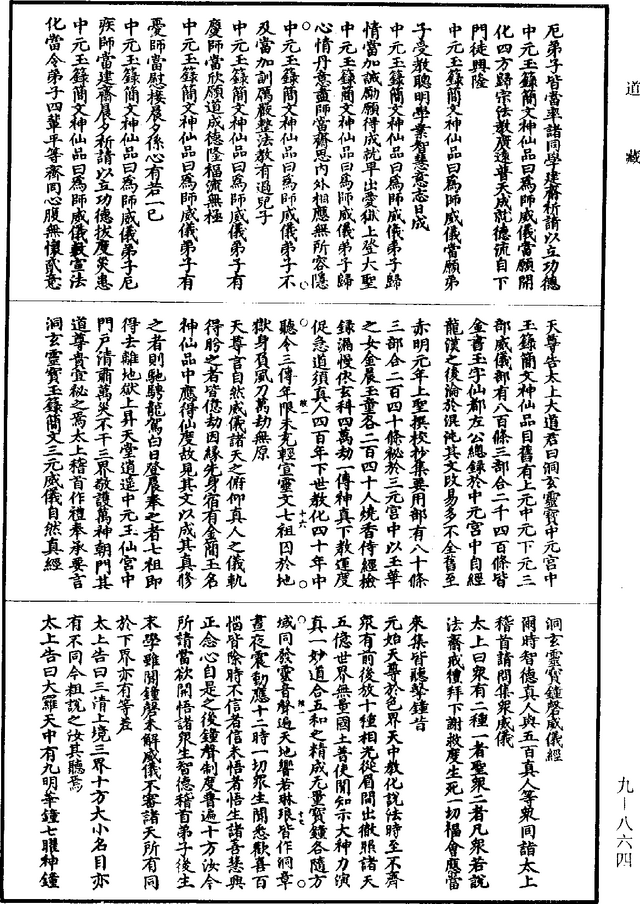 道藏
厄弟子皆當率諸同學建齋祈請以立功德
中元玉籙簡文神仙品曰為師威儀當願開
化四方歸宗法教廣遠普天成就德流自下
門徒興隆
中元玉籙簡文神仙品曰為師威儀當願弟
子受教聰明學業智慧意志日成
中元玉籙簡文神仙品曰為師威儀弟子歸
情當加誠勵願得成就早出愛獄上登大聖
中元玉籙簡文神仙品曰為師威儀弟子歸
心情丹意盡師當齋思內外相應無所容隱
中元玉籙簡文神仙品曰為師威儀弟子不
及當加訓厲嚴整法教有過兒子
中元玉籙簡文神仙品曰為師威儀弟子有
慶師當欣願道成德隆福流無極
中元玉籙簡文神仙品曰為師威儀弟子有
憂師當慰接晨夕係心有若一己
中元玉籙簡文神仙品曰為師威儀弟子厄
疾師當建齋晨夕祈請以立功德拔度災患
中元玉籙簡文神仙品曰為師威儀教宣法
化當令弟子四輩平等齋同心腹無懷貳意
天尊告太上大道君曰洞玄靈寶中元宮中
玉籙簡文神仙品目舊有上元中元下元三
部威儀部有八百條三部合二千四百條皆
金書玉字仙都左公總錄於中元宮中自經
龍漢之後淪於混沌其文改易多不全舊至
赤明元年上聖撰校抄集要用部有八十條
三部合二百四十條秘於三元宮中以玉華
之女金晨玉童各二百四十人燒香侍經檢
錄漏慢依玄科四萬劫一傳神真下教運度
促急道須真人四百年下世教化四十年中
聽令三傳年限未充輕宣靈文七祖囚於地
獄身負風刀萬劫無原
天尊言自然威儀諸天之俯仰真人之儀軌
得肹之者皆億劫因緣先身宿有金簡玉名
神仙品中應得仙度故見其文以成其真修
之者則馳騁龍駕白日登晨奉之者七祖即
得去離地獄上昇天堂逍遙中元玉仙宮中
門戶清肅萬災不干三界敬護萬神朝門其
道尊貴宜秘之焉太上稽首作禮奉承要言
洞玄靈寶玉籙簡文三元威儀自然真經
洞玄靈寶鐘磬威儀經
爾時智德真人與五百真人等眾同詣太上
稽首請問集眾威儀
太上曰眾有二種一者聖眾二者凡眾若說
法齋戒禮拜下謝救度生死一切福會應當
來集皆聽擊鐘昔
元始天尊於色界天中教化說法時至不齊
眾有前後放十種相光從眉間出徹照諸天
五億世界無量國土普使聞知示大神力演
真一妙道合五和之精成元量寶鐘各隨方
域同發靈音聲遍天地響若琳琅皆作洞章
晝夜震動應十二時一切眾生聞悉歡喜百
惱皆除時不信者信未悟者悟生諸喜慧興
正念心自是之後鐘聲制度普遍十方汝今
所請當欲開悟諸眾生智德稽首弟子後生
末學雖聞鐘磬未解威儀不審諸天所有同
於下界亦有等差
太上告曰三清上境三界十方大小名目亦
有不同今粗說之汝其聽焉
太上告曰大羅天中有九明華鐘七曜神鐘
九—八六四